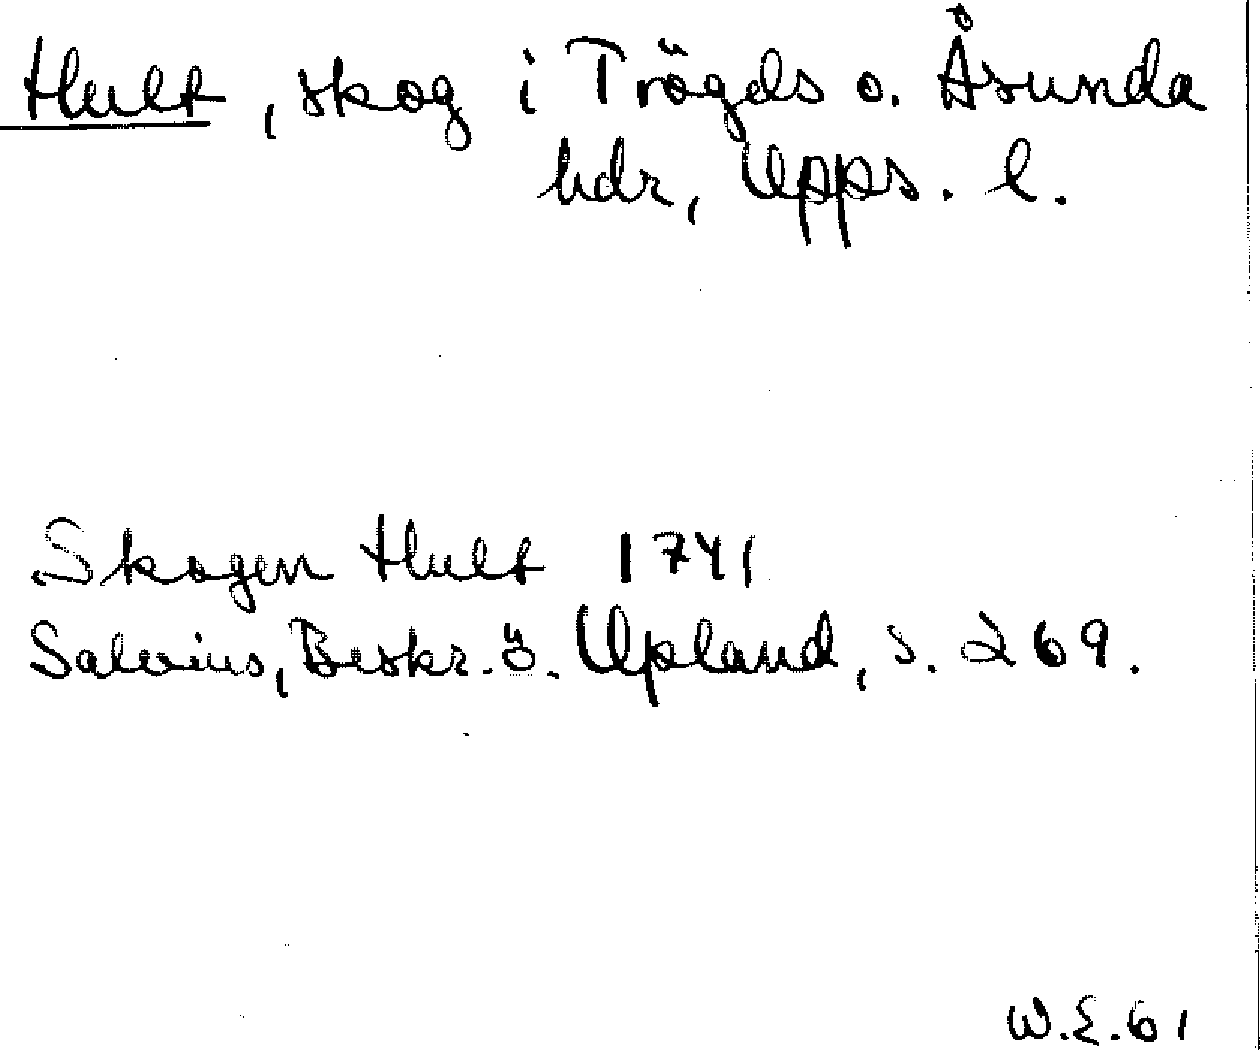 Hult, skog i Trögds o. Åsunda
hdr, Upps. l.
Skogen Hult 1741
Salvius, Beskr. ö. Upland, s. 269.
W.E.61